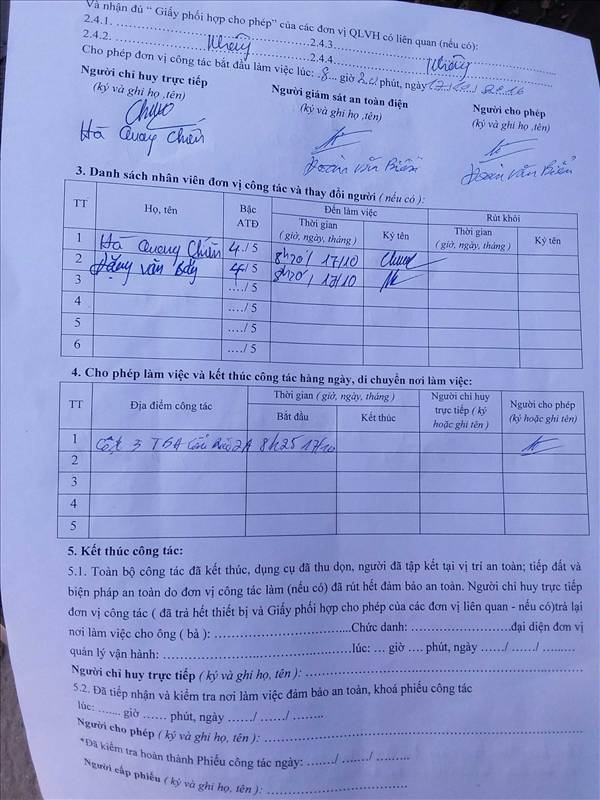 Và nhận đủ “ Giấy phối hợp cho phép” của các đơn vị QLVH có liên quan (nếu có):
2.4.1. ........ 2.4.3. ........
2.4.2. Không 2.4.4. Không
Cho phép đơn vị công tác bắt đầu làm việc lúc: .8... giờ 20 phút, ngày 17/10/2016
Người chỉ huy trực tiếp Người giám sát an toàn điện Người cho phép
(ký và ghi họ ,tên) (ký và ghi họ ,tên) (ký và ghi họ ,tên)
Hà Quang Chiến Đoàn Văn Biên Đoàn Văn Biên
3. Danh sách nhân viên đơn vị công tác và thay đổi người ( nếu có ):
TT Họ, tên Bậc ATĐ Đến làm việc Rút khỏi
Thời gian ( giờ, ngày, tháng ) Ký tên Thời gian ( giờ, ngày, tháng ) Ký tên
1 Hà Quang Chiến 4./ 5 8h20' 17/10
2 Đặng Văn Bảy 4/ 5 8h20' 17/10
3 ..../ 5
4 ..../ 5
5 ..../ 5
6 ..../ 5
4. Cho phép làm việc và kết thúc công tác hàng ngày, di chuyển nơi làm việc:
TT Địa điểm công tác Thời gian ( giờ, ngày, tháng ) Người chỉ huy trực tiếp ( ký hoặc ghi tên ) Người cho phép (ký hoặc ghi tên)
Bắt đầu Kết thúc
1 Cột 3 TBA 2A 8h25 17/10
2
3
4
5
5. Kết thúc công tác:
5.1. Toàn bộ công tác đã kết thúc, dụng cụ đã thu dọn, người đã tập kết tại vị trí an toàn; tiếp đất và
biện pháp an toàn do đơn vị công tác làm (nếu có) đã rút hết đảm bảo an toàn. Người chỉ huy trực tiếp
đơn vị công tác ( đã trả hết thiết bị và Giấy phối hợp cho phép của các đơn vị liên quan - nếu có)trả lại
nơi làm việc cho ông ( bà ): ........ Chức danh: ........ đại diện đơn vị
quản lý vận hành: ........ lúc: ... giờ .... phút, ngày ....../ ....../ .......
Người chỉ huy trực tiếp ( ký và ghi họ, tên ): ........
5.2. Đã tiếp nhận và kiểm tra nơi làm việc đảm bảo an toàn, khoá phiếu công tác
lúc: ....... giờ ...... phút, ngày ....../ ....../ ........
Người cho phép ( ký và ghi họ, tên ): ........
*Đã kiểm tra hoàn thành Phiếu công tác ngày: ......./ ......./ ........
Người cấp phiếu ( ký và ghi họ, tên ): ........